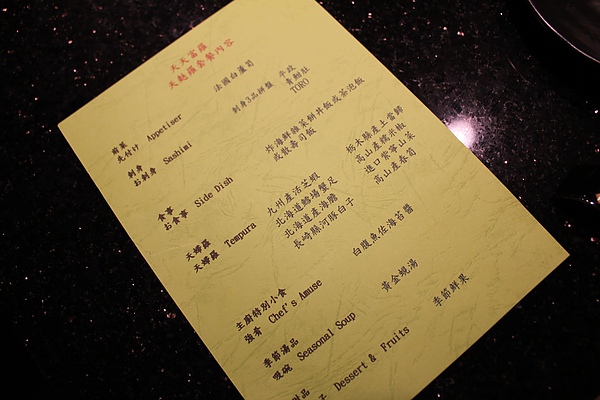 天天富羅
天麩羅套餐內容
前菜
先付け Appetiser 法國白蘆筍
刺身
お刺身 Sashimi 刺身3品拼盤 平政
青魽肚
TORO
食事
お食事 Side Dish 炸海鮮雜菜餅丼飯或茶泡飯
或散壽司飯
天婦羅
天婦羅 Tempura 九州產活芝蝦 栃木縣產土當歸
北海道鱈場蟹足 高山產糯米椒
北海道產海膽 進口紫露山菜
長崎縣河豚白子 高山產春筍
主廚特別小食
強肴 Chef's Amuse 白腹魚佐海苔醬
季節湯品
吸碗 Seasonal Soup 黃金蜆湯
甜品
子 Dessert & Fruits 季節鮮果